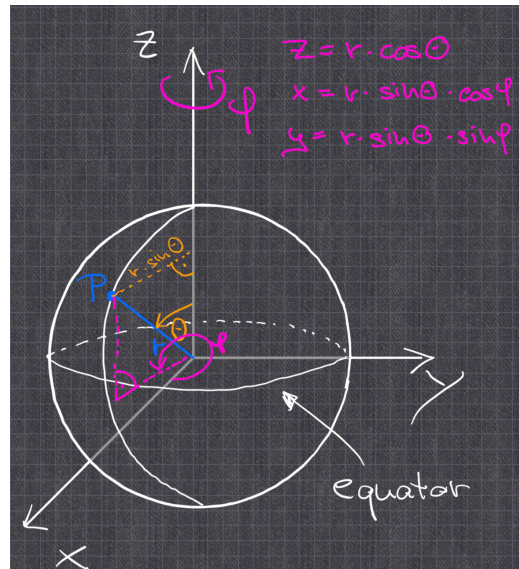 Z
z = r · cosΘ
x = r · sinΘ · cosφ
y = r · sinΘ · sinφ
φ
r · sinΘ
P
Θ
r
φ
Y
equator
X